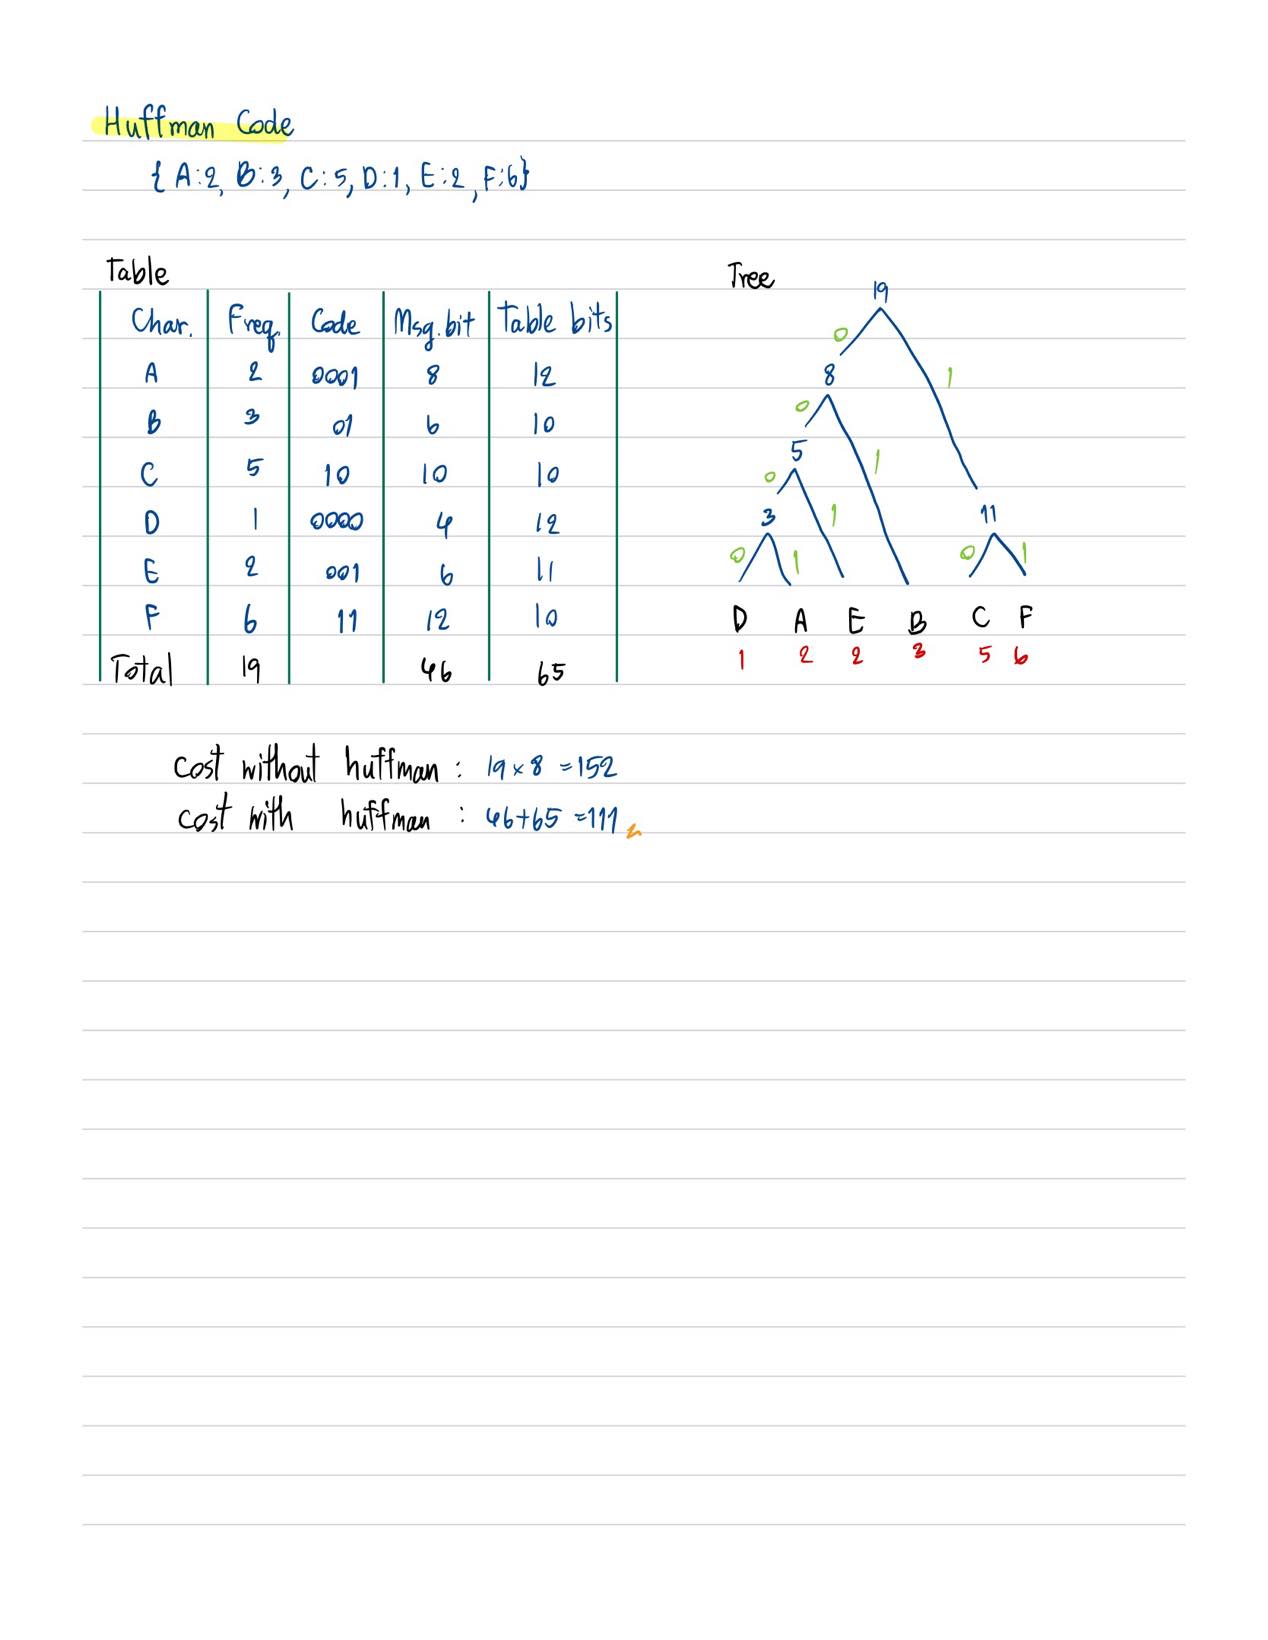 Huffman Code
{ A:2, B:3, C:5, D:1, E:2, F:6}
Table
Char. Freq. Code Msg.bit Table bits
A 2 0001 8 12
B 3 01 6 10
C 5 10 10 10
D 1 0000 4 12
E 2 001 6 11
F 6 11 12 10
Total 19 46 65
Tree
19
0 1
8
0 1
5
0 1
3 11
0 1 0 1
D A E B C F
1 2 2 3 5 6
cost without huffman : 19 x 8 = 152
cost with huffman : 46+65 = 111